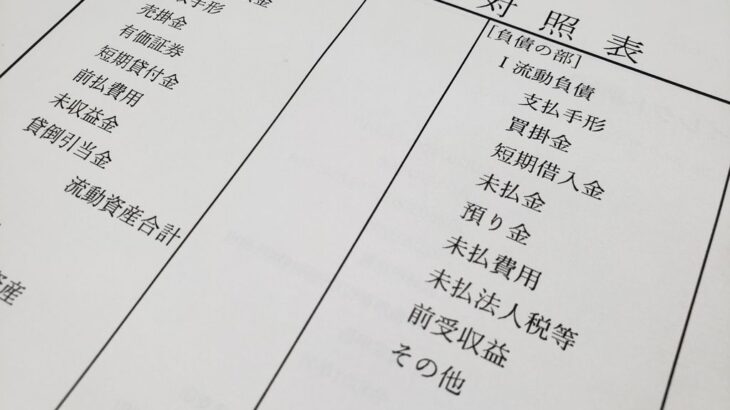 対照表
金
手形
売掛金
有価証券
短期貸付金
前払費用
未収益金
貸倒引当金
流動資産合計
資産
[負債の部]
I 流動負債
支払手形
買掛金
短期借入金
未払金
預り金
未払費用
未払法人税等
前受収益
その他